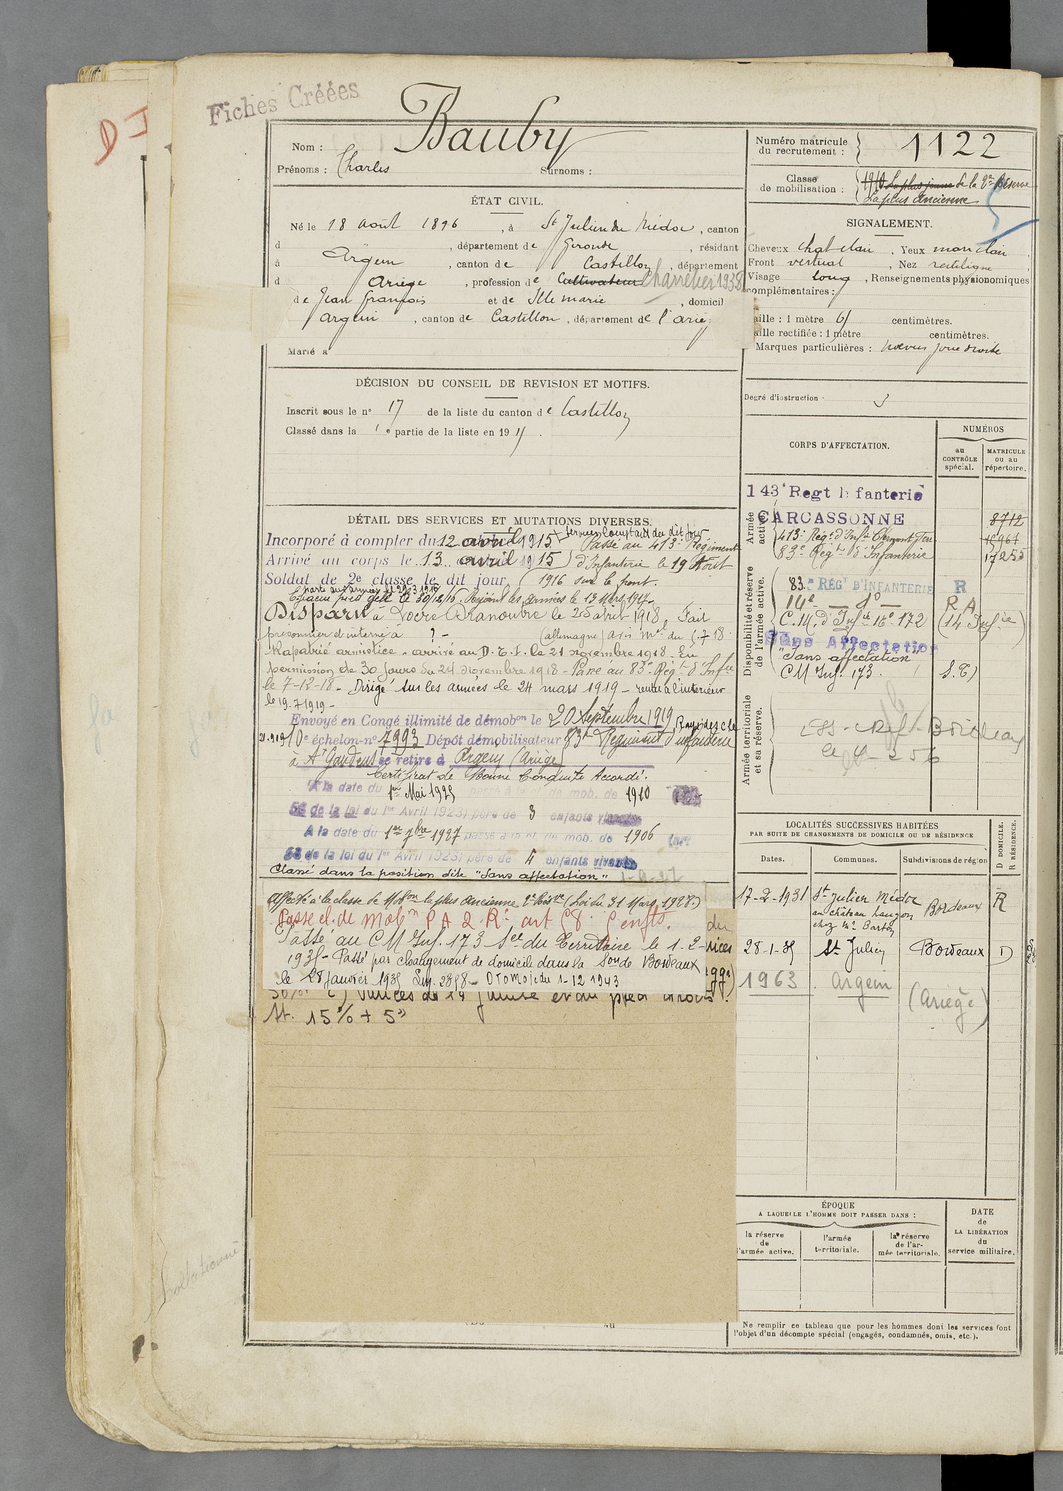 Fiches Créées
D I
Nom : Bauby
Prénoms : Charles Surnoms :
Numéro matricule du recrutement : 1122
Classe de mobilisation : 1910 La plus jeune de la 2e Réserve
La plus ancienne
ÉTAT CIVIL.
Né le 18 août 1896, à St Julien du Médoc, canton
d , département de Gironde, résidant
à Argein, canton de Castillon, département
d Ariège, profession de Cultivateur Charretier 1938
de Jean François et de Ille marie, domicil
Argein, canton de Castillon, département de l'arieg
Marié à
SIGNALEMENT.
Cheveux chat clair, Yeux marr clair,
Front vertical, Nez rectiligne
Visage long, Renseignements physionomiques
complémentaires :
aille : 1 mètre 61 centimètres.
aille rectifiée : 1 mètre centimètres.
Marques particulières : noevus joue droite
Degré d'instruction : 3
DÉCISION DU CONSEIL DE REVISION ET MOTIFS.
Inscrit sous le no 17 de la liste du canton de Castillon
Classé dans la 1e partie de la liste en 1915.
CORPS D'AFFECTATION.
NUMÉROS
au CONTRÔLE spécial.
MATRICULE ou au répertoire.
Armée active.
143e Regt Infanterie
CARCASSONNE 8712
413e Régt d'Infie
83e Regt d'Infanterie 17255
Disponibilité et réserve de l'armée active.
83e RÉGt D'INFANTERIE R
C.M. d'Infie 16e 172
Sans Affectation
"Sans affectation"
CM Inf. 173. S.T)
Armée territoriale et sa réserve.
DÉTAIL DES SERVICES ET MUTATIONS DIVERSES.
Incorporé à compter du 12 avril 1915 Passé au 413e Régiment
Arrivé au corps le 13 avril 1915 d'Infanterie le 19 Août
Soldat de 2e classe le dit jour. 1916 sur le front.
Rejoint les armées le 13 Mars 1917
Disparu à Locre Dranoutre le 25 avril 1918, Fait
prisonnier et interné à ? - (allemagne) avis Mel du 1.7.18.
Rapatrié armistice - arrivé au D.T.I. le 21 novembre 1918. En
permission de 30 jours du 24 Novembre 1918 - Passé au 83e Régt d'Infie
le 7-12-18 - Dirigé sur les armées le 24 mars 1919 - rentré à l'intérieur
le 19.7.1919 -
Envoyé en Congé illimité de démobon le 20 Septembre 1919,
10e échelon no 7993 Dépôt démobilisateur 83e Régiment d'infanterie
à St Gaudens se retire à Argein (Ariège)
Certificat de Bonne Conduite Accordé.
A la date du 1er Mai 1925 passé à la cl. de mob. de 1910
58 de la loi du 1er Avril 1923) père de 3 enfants vivants
A la date du 1er 7bre 1927 passé à la cl. de mob. de 1906
58 de la loi du 1er Avril 1923) père de 4 enfants vivants
Classé dans la position dite "Sans affectation"
Affecté à la classe de Mobon la plus ancienne (Loi du 31 Mars 1928)
Passe cl. de Mobon P A 2e Re art 58.
Passé au CM Inf. 173 - Son du Territoire le 1-2-
1935 - Passé par changement de domicile dans la Son de Bordeaux
le 28 Janvier 1935
St. 15% + 5"
LOCALITÉS SUCCESSIVES HABITÉES
PAR SUITE DE CHANGEMENTS DE DOMICILE OU DE RÉSIDENCE
D DOMICILE.
R RÉSIDENCE.
Dates. Communes. Subdivisions de région
17-2-1931 St Julien Médoc Bordeaux R
au château Langon
chez Mr Barton
28-1-35 St Julien Bordeaux D
1963 Argein (Ariège)
ÉPOQUE
A LAQUELLE L'HOMME DOIT PASSER DANS :
la réserve de l'armée active.
l'armée territoriale.
la réserve de l'armée territoriale.
DATE de LA LIBÉRATION du service militaire.
Ne remplir ce tableau que pour les hommes dont les services font
l'objet d'un décompte spécial (engagés, condamnés, omis, etc.).